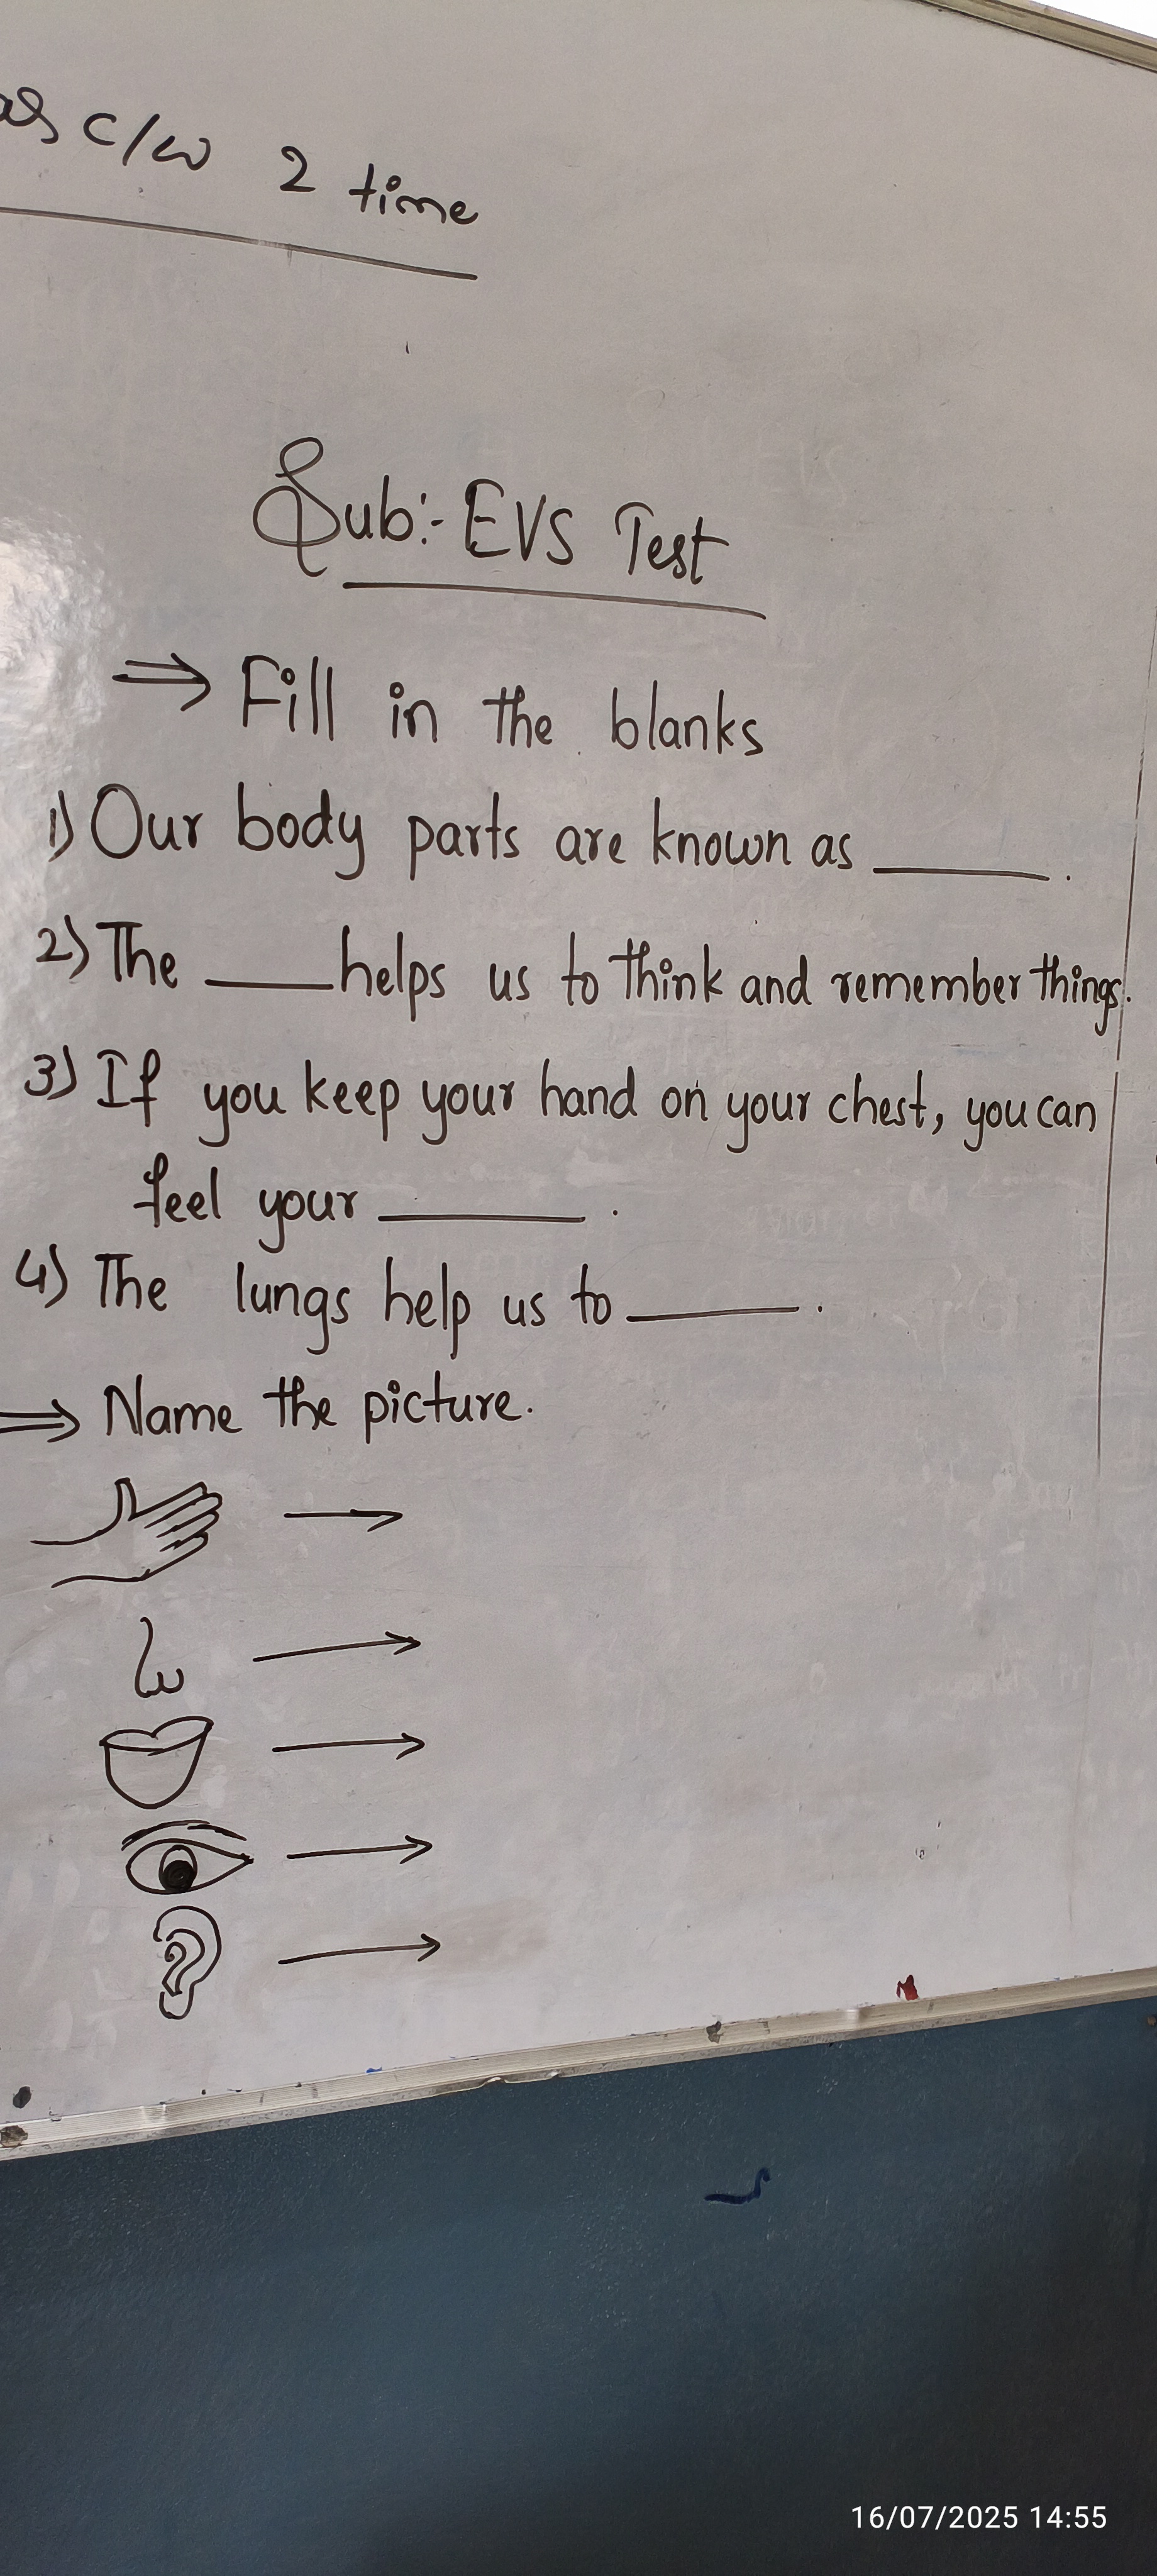 c/w 2 time
Sub:- EVS Test
⇒ Fill in the blanks
1) Our body parts are known as ______.
2) The ____ helps us to think and remember things.
3) If you keep your hand on your chest, you can
feel your ______.
4) The lungs help us to ______.
⇒ Name the picture.
16/07/2025 14:55